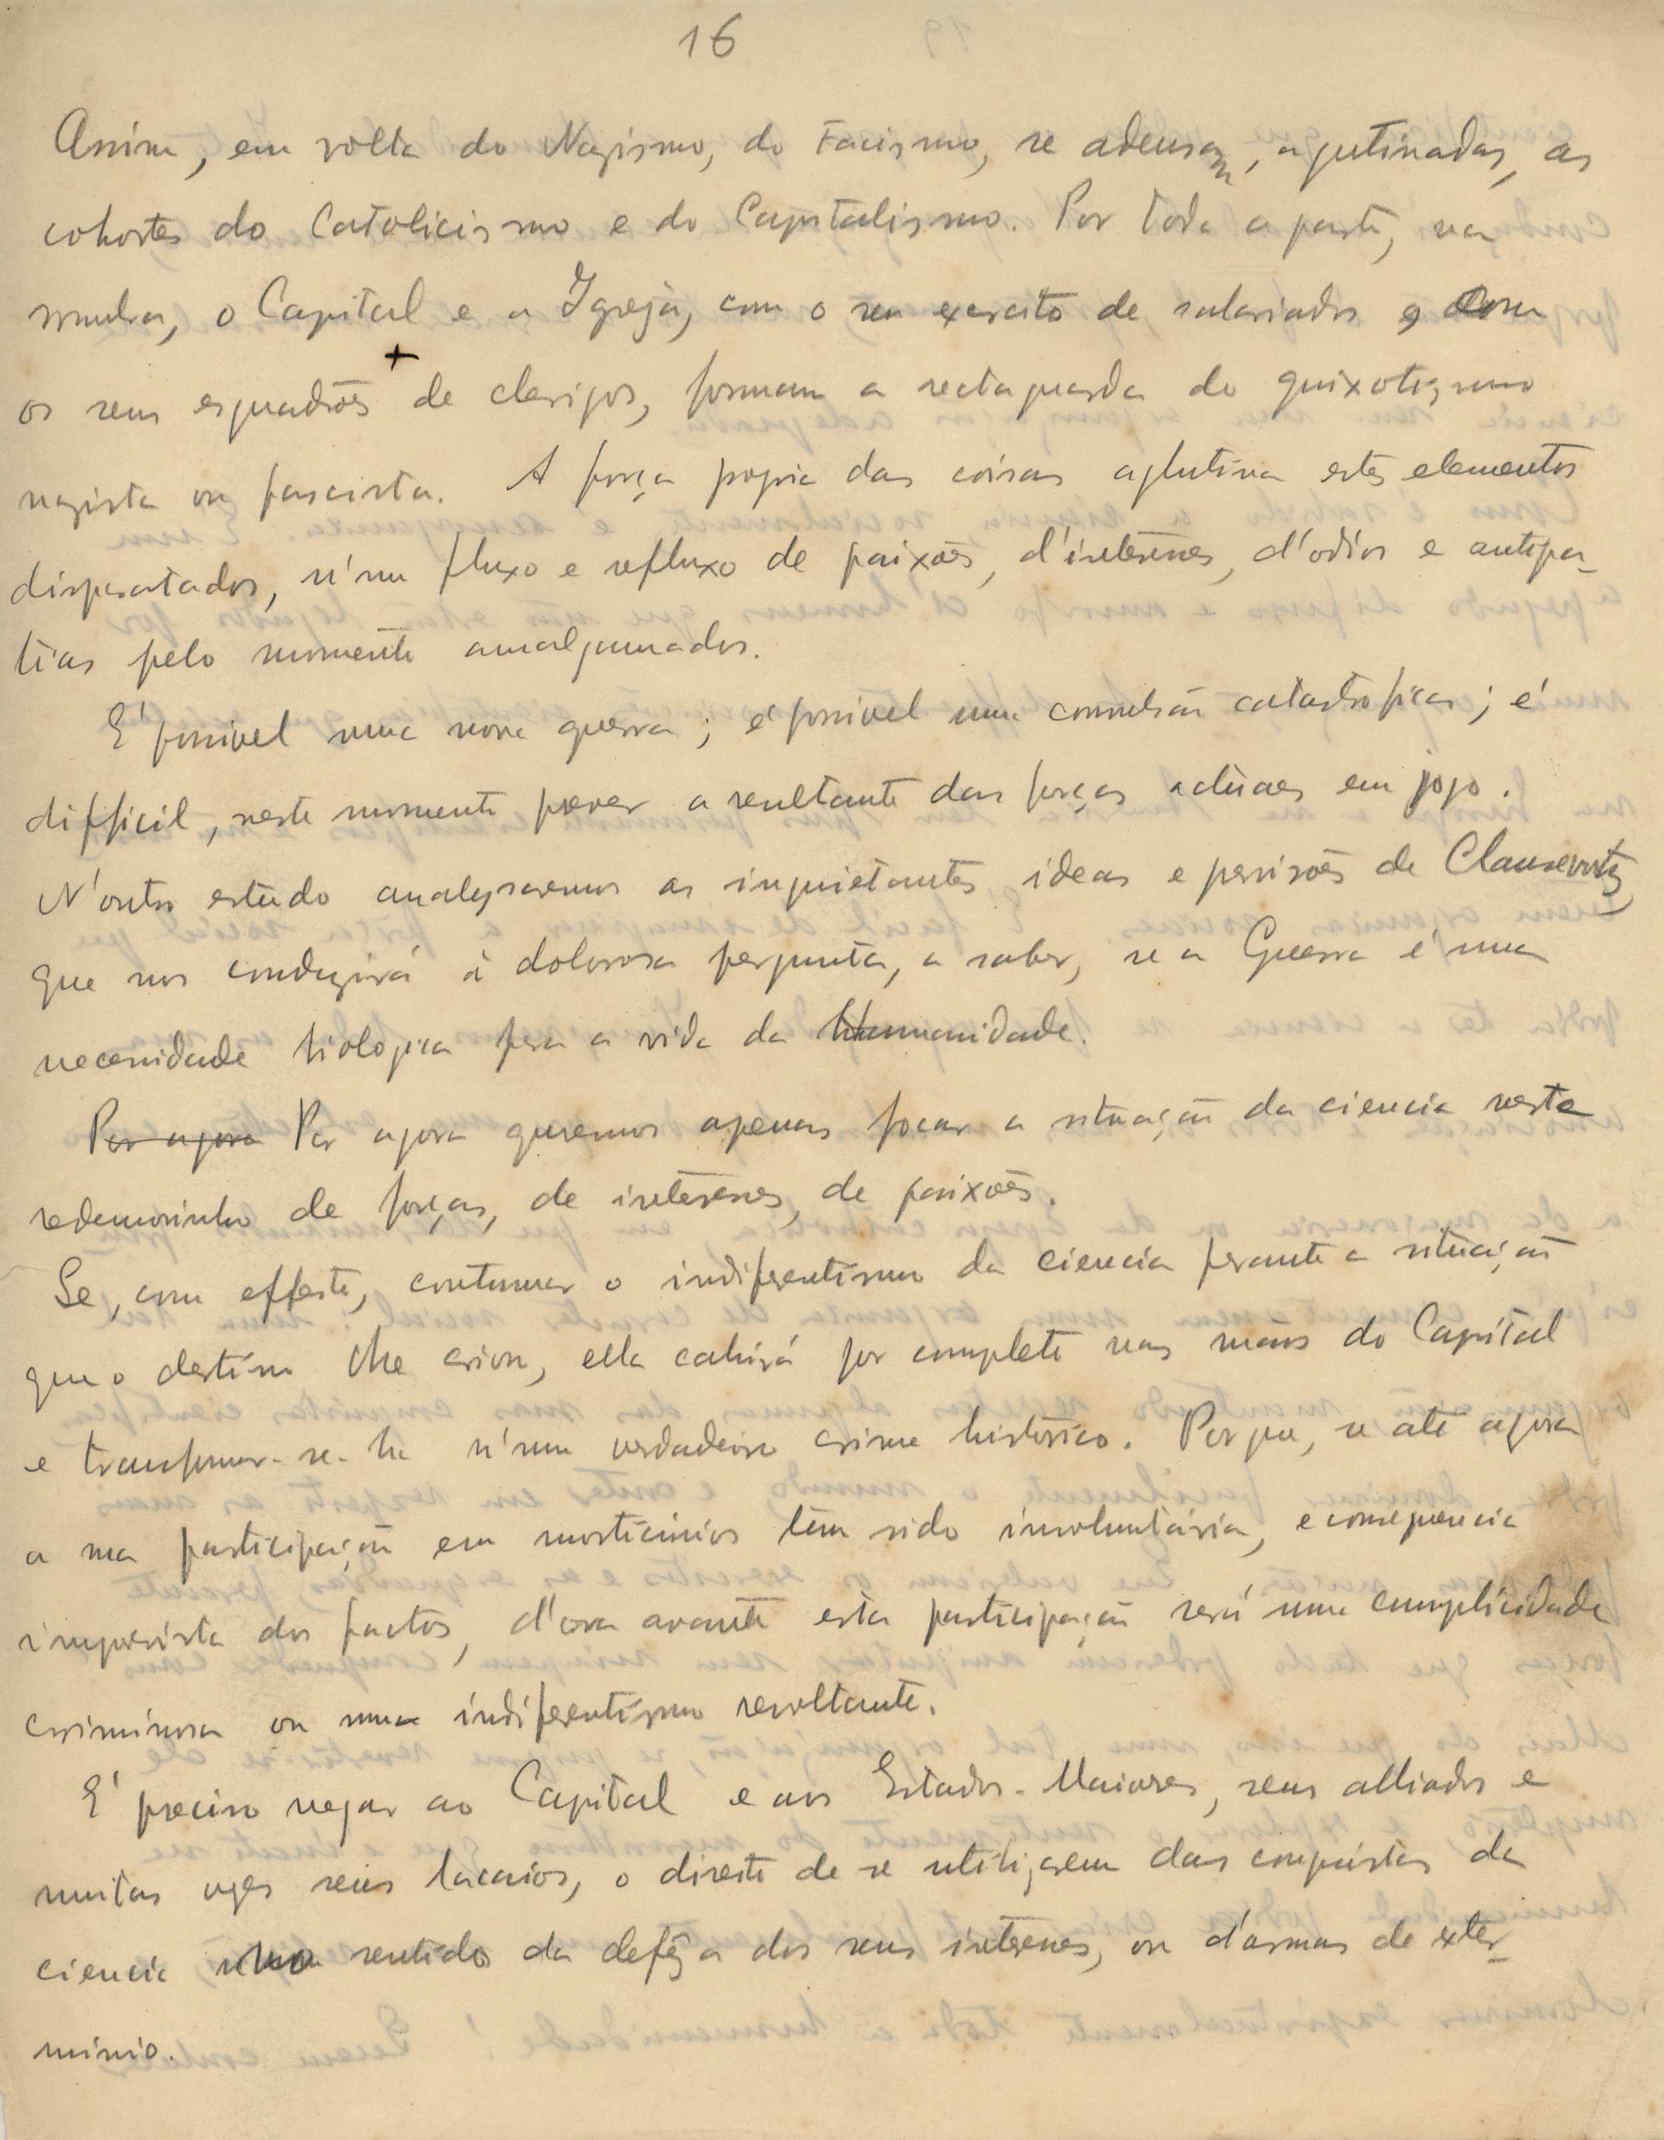 16
Assim, em volta do Nazismo, do Facismo, se adensam, aglutinadas, as
cohortes do Catolicismo e do Capitalismo. Por toda a parte, na
sombra, o Capital e a Igreja, com o seu exercito de salariados e com
os seus esquadrões + de clerigos, formam a rectaguarda do quixotismo
nazista ou fascista. A força propria das coisas aglutina estes elementos
disparatados, n'um fluxo e refluxo de paixões, d'interesses, d'odios e antipa-
tias pelo momento amalgamados.
É possivel uma nova guerra; é possivel uma convulsão catastrofica; é
difficil, neste momento prever a resultante das forças actuaes em jogo.
N'outro estudo analysaremos as inquietantes ideas e previsões de Clausewitz
que nos conduzirá á dolorosa pergunta, a saber, se a Guerra é uma
necessidade biologica para a vida da Humanidade.
Por agora Por agora queremos apenas focar a situação da ciencia neste
redemoinho de forças, de interesses, de paixões.
Se, com effeito, continuar o indiferentismo da ciencia perante a situação
que o destino lhe criou, ella cahirá por completo nas mãos do Capital
e transformar-se-ha n'um verdadeiro crime historico. Porque, se até agora
a sua participação em morticinios tem sido involuntária, e consequencia
imprevista dos factos, d'ora avante esta participação será uma cumplicidade
criminosa ou uma indiferentismo revoltante.
É preciso negar ao Capital e aos Estados-Maiores, seus alliados e
muitas vezes seus lacaios, o direito de se utilizarem das conquistas da
ciencia no sentido da defêza dos seus interesses, ou d'armas de exter-
minio.